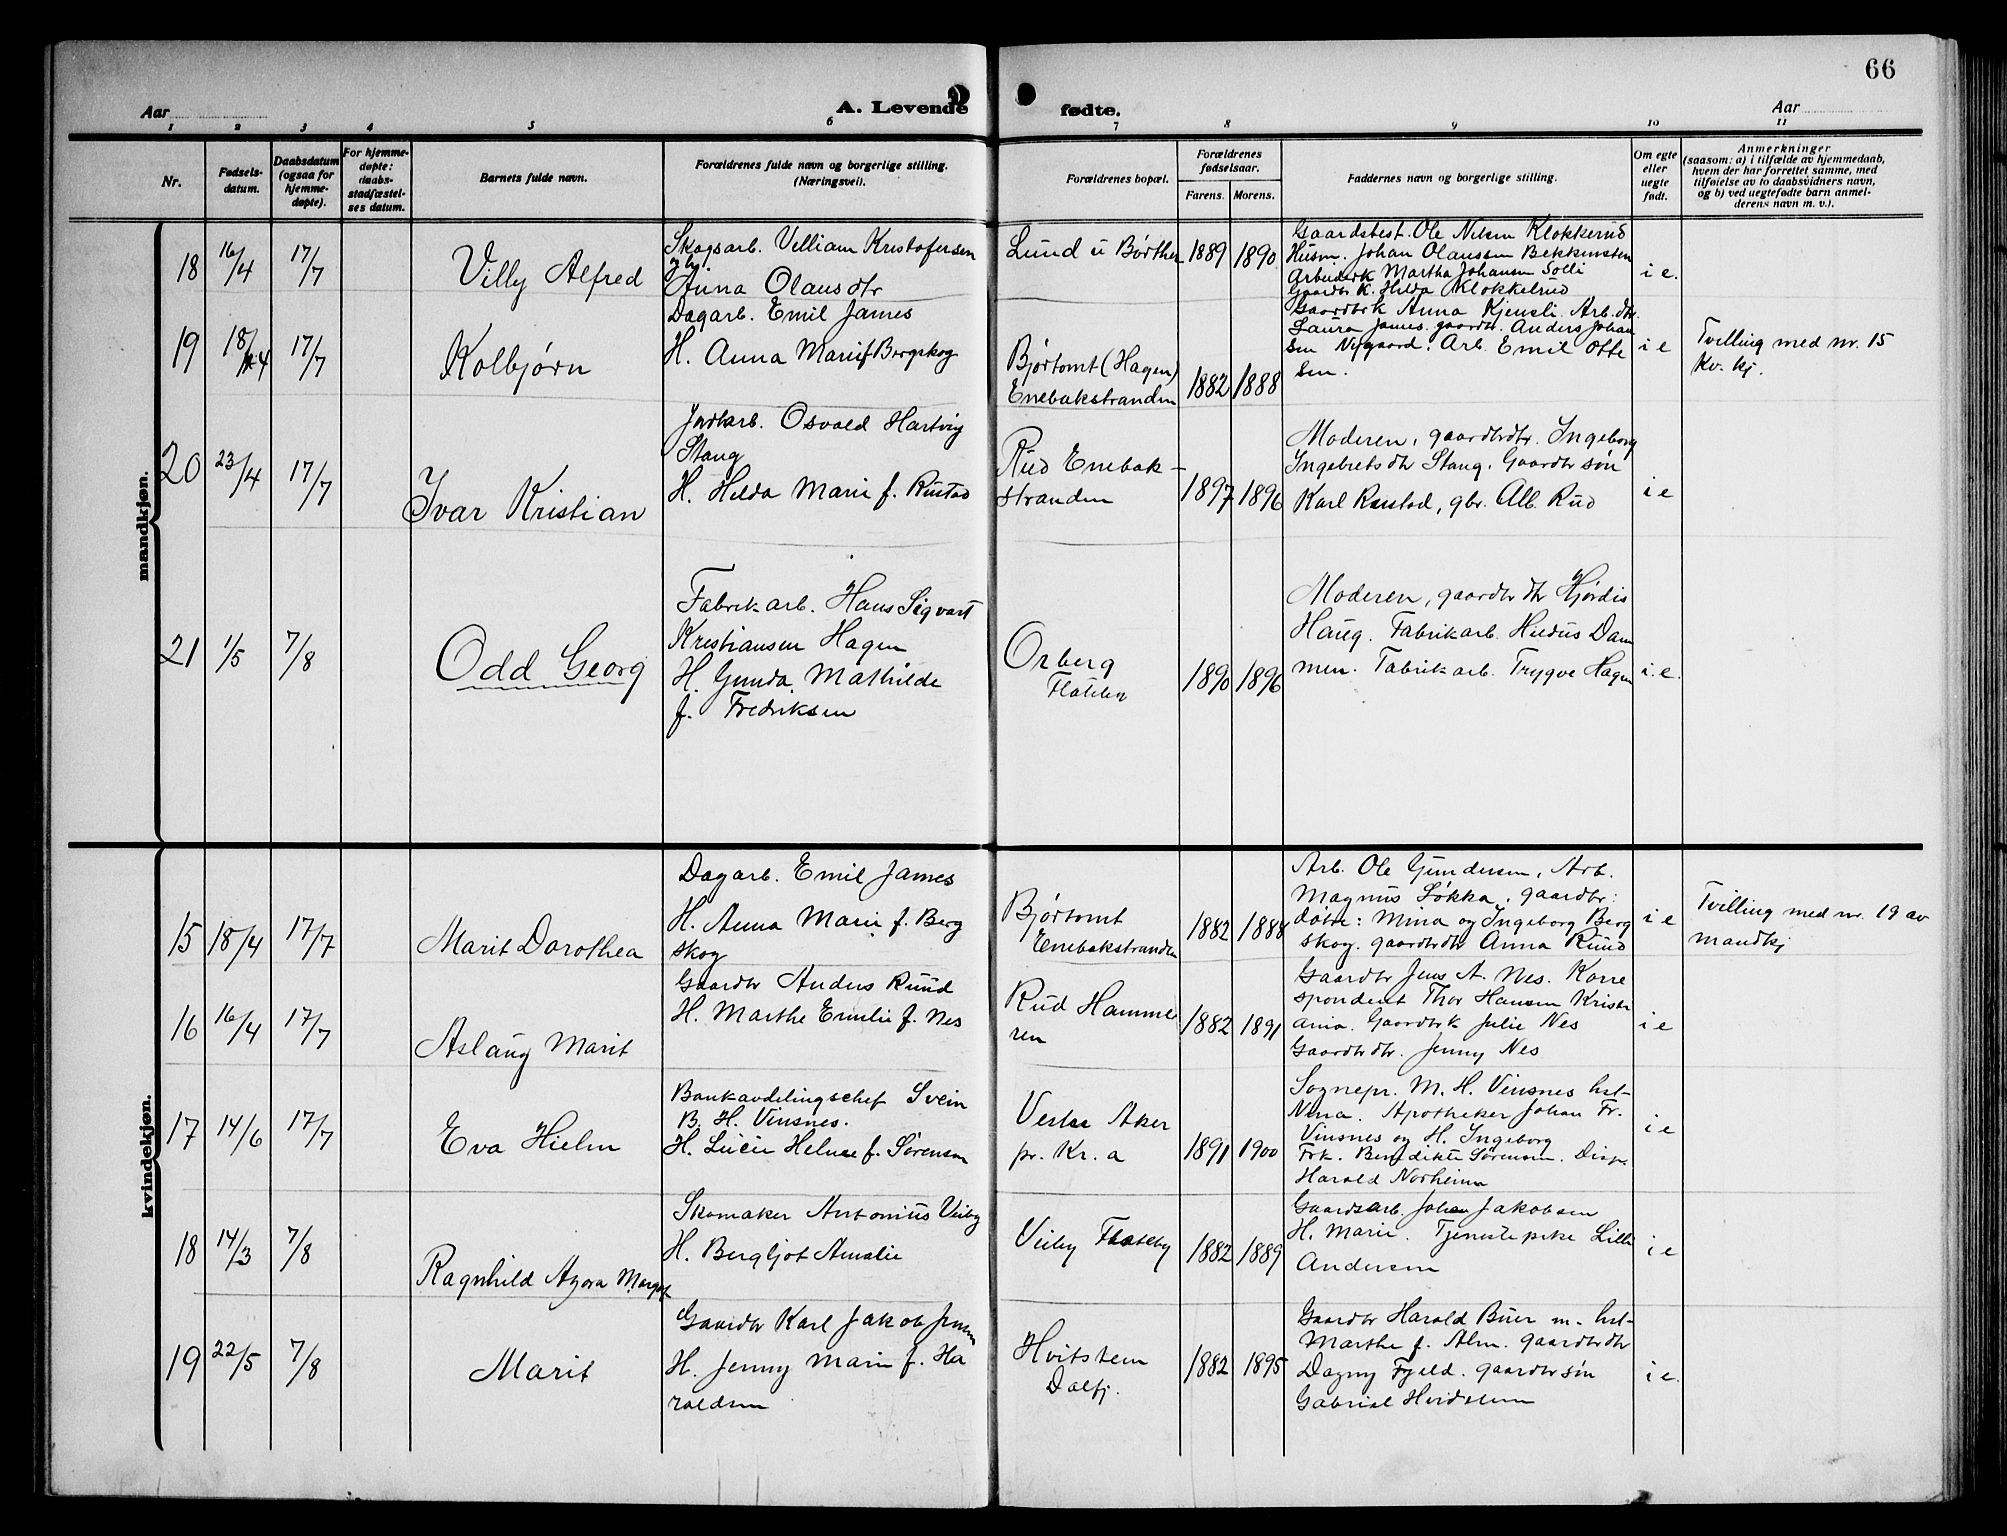 66
Aar
A. Levende
fødte.
Aar
1 2 3 4 5 6 7 8 9 10 11
Nr.
Fødsels-
datum.
Daabsdatum
(ogsaa for
hjemme-
døpte).
For hjemme-
døpte:
daabs-
stadfæstel-
ses datum.
Barnets fulde navn.
Forældrenes fulde navn og borgerlige stilling.
(Næringsvei).
Forældrenes bopæl.
Forældrenes
fødselsaar.
Farens. Morens.
Faddernes navn og borgerlige stilling.
Om egte
eller
uegte
født.
Anmerkninger
(saasom: a) i tilfælde av hjemmedaab,
hvem der har forrettet samme, med
tilføielse av to daabsvidners navn,
og b) ved uegtefødte barn anmel-
derens navn m. v.).
mandkjøn.
18
16/4
17/7
Villy Alfred
Skogsarb. Villiam Kristofersen
Anna Olausdtr
Lund u Børther
1889
1890
Gaardsbest. Ole Nilsen Klokkerud
Husm. Johan Olaussen Bekkensten
Arbeiderk Martha Johansen Solli
Gaardbr K. Hilda Klokkelrud
i e.
19
18/4
17/7
Kolbjørn
Dagarb. Emil James
H. Anna Marie f Bergskog
Bjørtomt (Hagen)
Enebakstranden
1882
1888
Gaardbrk Anna Kjensli. Arb. dtr.
Laura James. gaardbr. Anders Johan
sen Nygaard. Arb. Emil Otte
sen.
i e
Tvilling med nr. 15
Kv. kj.
20
23/4
17/7
Ivar Kristian
Jordarb. Osvald Hartvig
Stang
H. Hilda Marie f. Rustad
Rud Enebak-
stranden
1897
1896
Moderen, gaardbrdtr. Ingeborg
Ingebretsdtr Stang. Gaardbr søn
Karl Rustad, gbr. Alb. Rud
i e
21
1/5
7/8
Odd Georg
Fabrikarb. Hans Sigvart
Kristiansen Hagen
H. Gunda Mathilde
f. Fredriksen
Orberg
Flateby
1890
1896
Moderen, gaardbr dtr Hjørdis
Haug. Fabrikarb. Hidus Dam
men. Fabrikarb. Trygve Hagen
i. e.
kvindekjøn.
15
18/4
17/7
Marit Dorothea
Dagarb. Emil James
H. Anna Marie f. Berg
skog
Bjørtomt
Enebakstranden
1882
1888
Arb. Ole Gundersen, Arb.
Magnus Løkka, gaardbr:
døtre: Mina og Ingeborg Berg
skog. gaardbrdtr Anna Ruud
i e
Tvilling med nr. 19 av
mandkj
16
16/4
17/7
Aslaug Marit
Gaardbr Anders Ruud
H. Marthe Emilie f. Nes
Rud Hamme
ren
1882
1891
Gaardbr Jens A. Nes. Korre
spondent Thor Hansen Kristi
ania. Gaardbrk Julie Nes
Gaardbrdtr. Jenny Nes
i e
17
14/6
17/7
Eva Hielm
Bankavdelingschef Svein
B. H. Vinsnes.
H. Lucie Helene f. Sørensen
Vestre Aker
pr. Kr.a
1891
1900
Sognepr. M. H. Vinsnes hst-
Nina. Apotheker Johan Fr.
Vinsnes og H. Ingeborg
Frk. Benedikte Sørensen. Disp.
Harald Norheim
i e
18
14/3
7/8
Ragnhild Agora Margot
Skomaker Antonius Veiby
H. Bergljot Amalie
Veiby Flateby
1882
1889
Gaardsarb. Johan Jakobsen
H. Marie. Tjenestepike Lilli
Andersen
i e
19
22/5
7/8
Marit
Gaardbr Karl Jakob Jensen
H. Jenny Marie f. Ha
raldsen
Hvitsten
Dalfj.
1882
1895
Gaardbr Harald Buer m. hst-
Marthe f. Alm. gaardbrdtr
Dagny Fjeld. gaardbrsøn
Gabriel Hvidsten
i e.